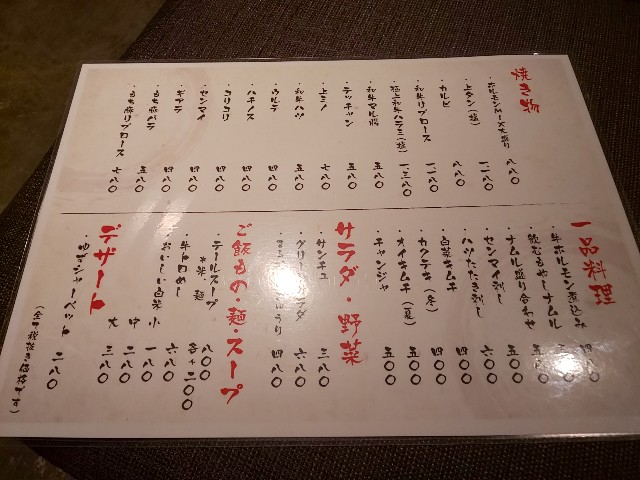 焼き物
・ホルモンミックス盛り 八八〇
・上タン(塩) 一一八〇
・カルビ 八八〇
・和牛リブロース 一一八〇
・極上和牛ハラミ(塩) 一三八〇
・和牛マル腸 五八〇
・テッチャン 五八〇
・上ミノ 七八〇
・和牛ハツ 五八〇
・ウルテ 四八〇
・ハチノス 四八〇
・コリコリ 四八〇
・センマイ 四八〇
・ギアラ 四八〇
・もち豚バラ 五八〇
・もち豚リブロース 七八〇
一品料理
・牛ホルモン煮込み
・飲むもやしナムル
・ナムル盛り合わせ 五〇〇
・センマイ刺し 六〇〇
・ハツたたき刺し 四八〇
・白菜キムチ 四〇〇
・カクテキ(冬) 四〇〇
・オイキムチ(夏) 五〇〇
・チャンジャ 五〇〇
サラダ・野菜
・サンチュ 三八〇
・グリーンサラダ 六八〇
うり 四八〇
ご飯もの・麺・スープ
・テールスープ 八〇〇
*米 麺 各+二〇〇
・牛トロめし 六八〇
・おいしい白米 小 一八〇
中 二八〇
大 三八〇
デザート
・シャーベット 二八〇
(全て税抜き価格です)